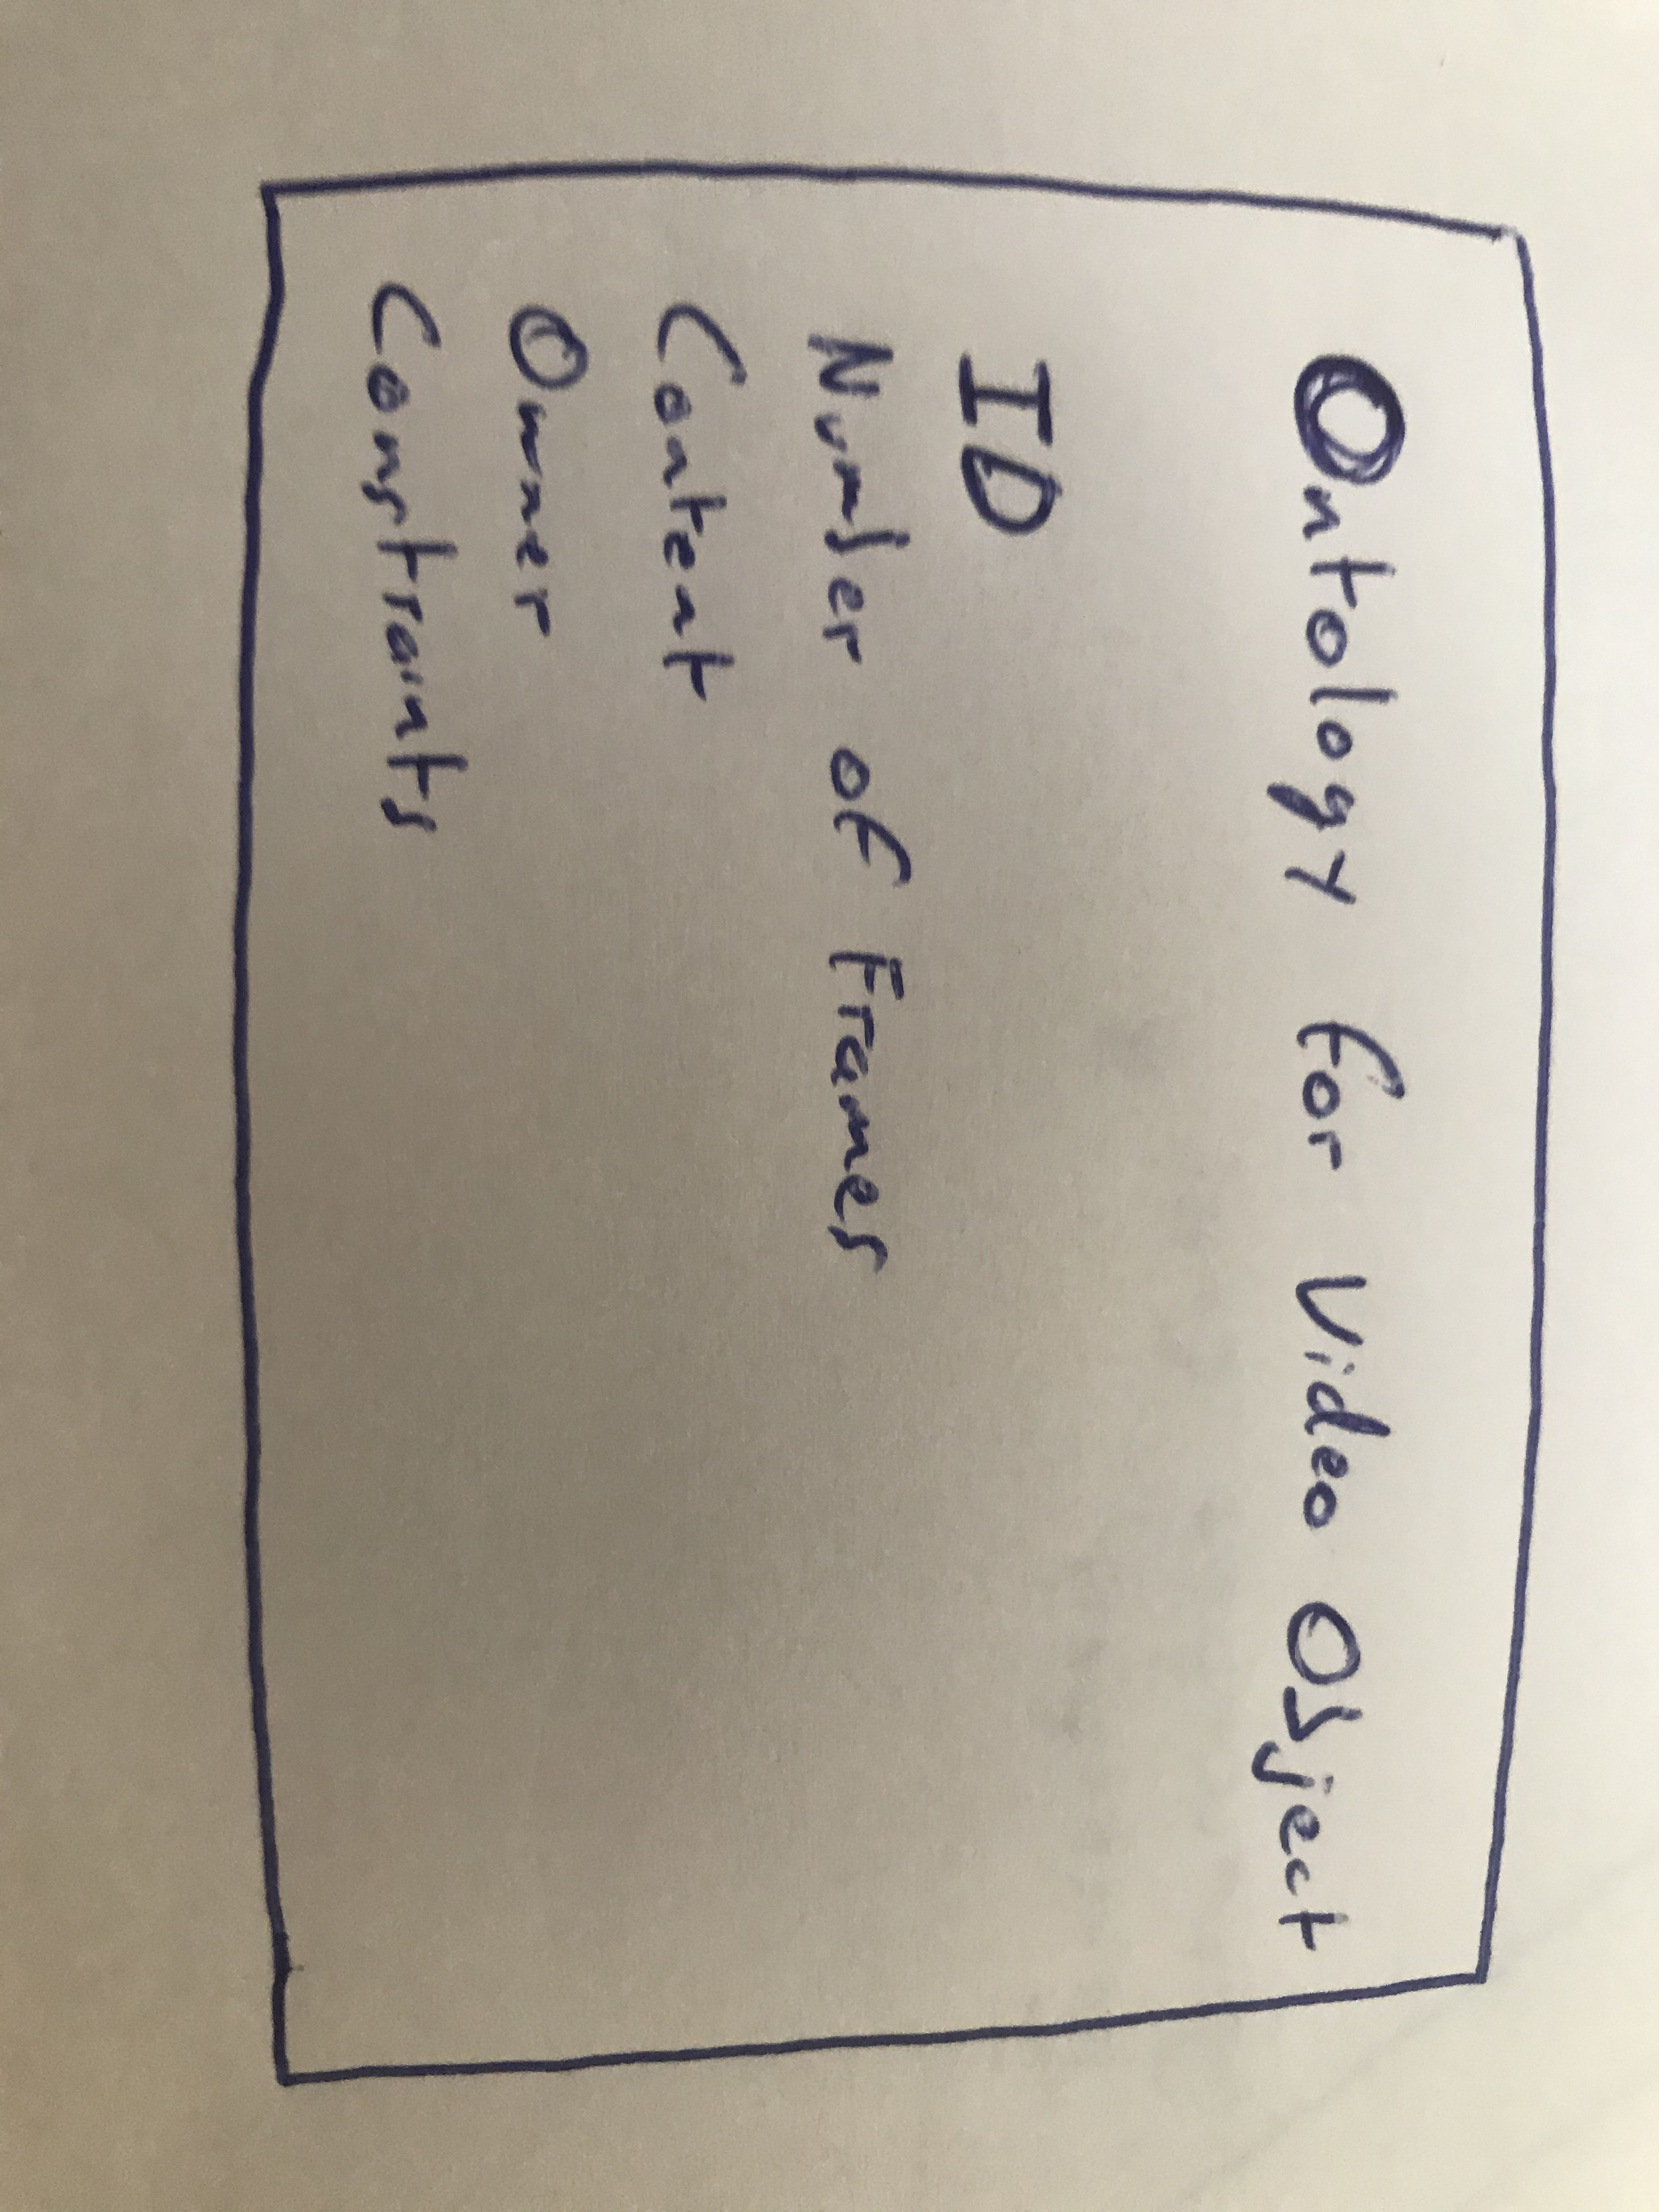 Ontology for Video Object
ID
Number of Frames
Content
Owner
Constraints